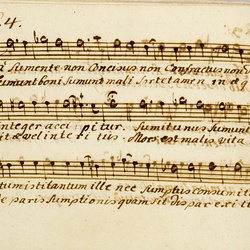 24.
A Sumente non Concisus non Confractus non d
Sumunt boni Sumunt mali Sorte tamen in æq
integer acci pitur. Sumit unus Sumun
itæ vel interi tus. Mors est malis vita
tum isti tantum ille nec Sumptus consumit
de paris Sumptionis quam sit dispar exitu